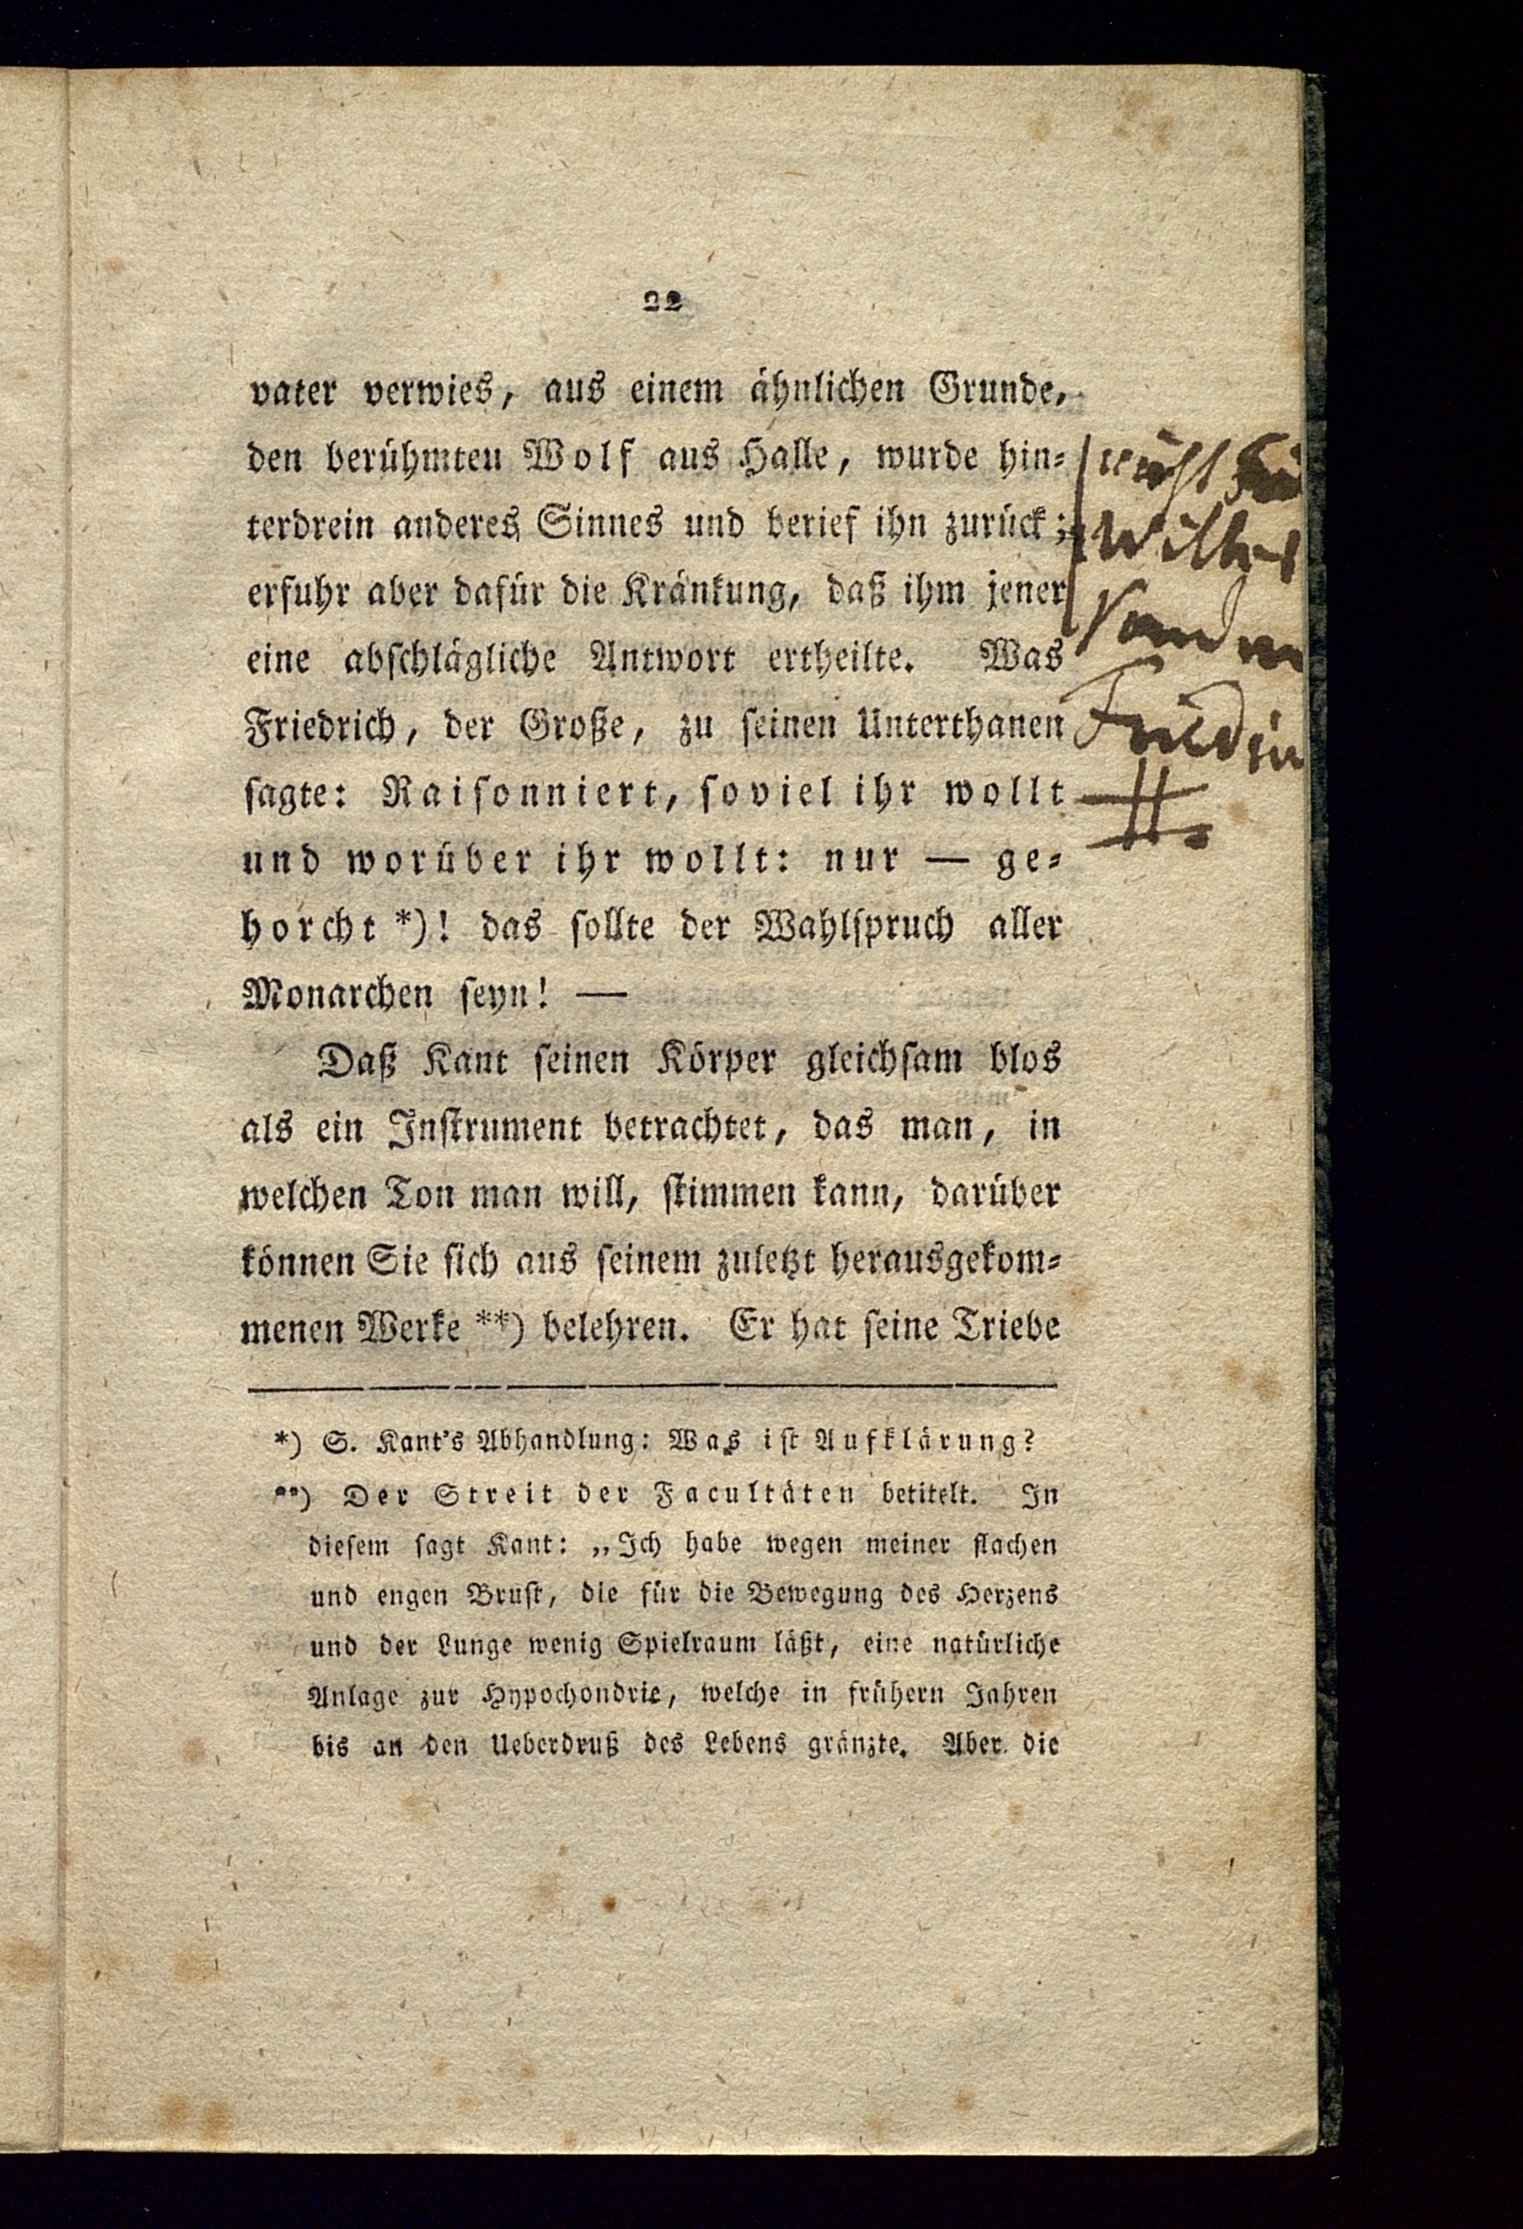 22
vater verwies, aus einem ähnlichen Grunde,
den berühmten Wolf aus Halle, wurde hin-
terdrein anderes Sinnes und berief ihn zurück;
erfuhr aber dafür die Kränkung, daß ihm jener
eine abschlägliche Antwort ertheilte. Was
Friedrich, der Große, zu seinen Unterthanen
sagte: Raisonniert, soviel ihr wollt
und worüber ihr wollt: nur — ge-
horcht *)! das sollte der Wahlspruch aller
Monarchen seyn! —
Daß Kant seinen Körper gleichsam blos
als ein Instrument betrachtet, das man, in
welchen Ton man will, stimmen kann, darüber
können Sie sich aus seinem zuletzt herausgekom-
menen Werke **) belehren. Er hat seine Triebe
*) S. Kant's Abhandlung: Was ist Aufklärung?
**) Der Streit der Facultäten betitelt. In
diesem sagt Kant: „Ich habe wegen meiner flachen
und engen Brust, die für die Bewegung des Herzens
und der Lunge wenig Spielraum läßt, eine natürliche
Anlage zur Hypochondrie, welche in frühern Jahren
bis an den Ueberdruß des Lebens gränzte. Aber die
nicht
Wilhel
sondern
Friedri
II.